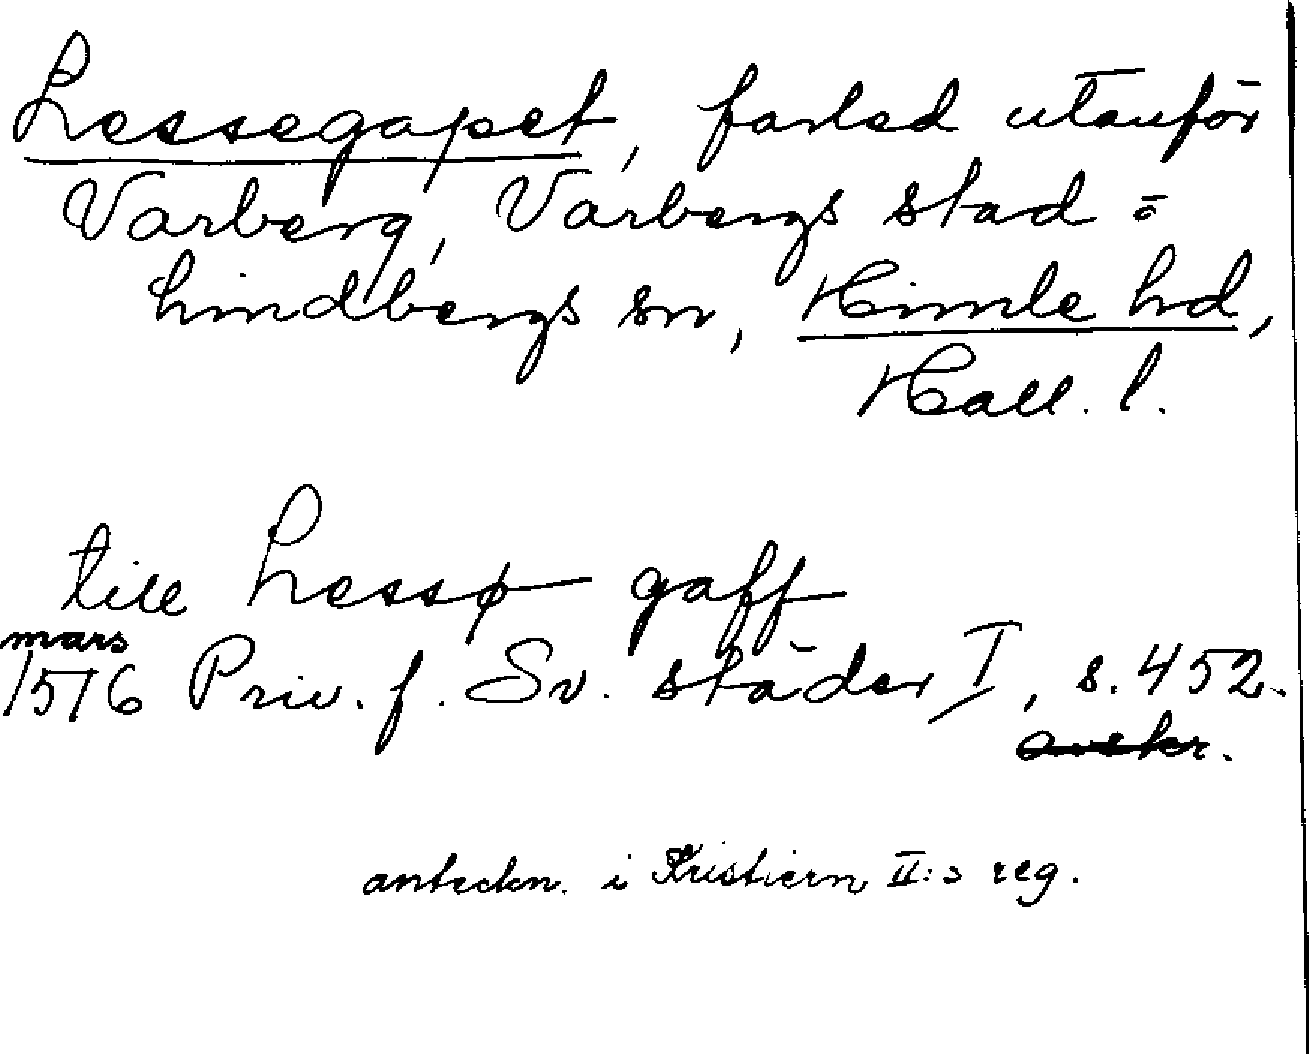 Lessegapet, farled utanför
Varberg, Varbergs stad o
Lindbergs sn, Himle hd,
Hall. l.
till Lessø gaff
mars
1516 Priv. f. Sv. städer I, s. 452.
avskr.
anteckn. i Kristiern II:s reg.